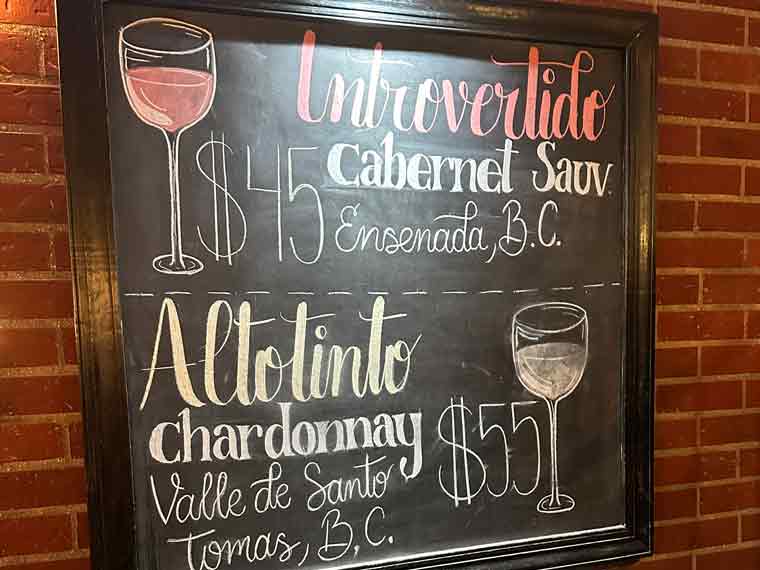 Introvertido
Cabernet Sauv
$45
Ensenada, B.C.
Altotinto
chardonnay
$55
Valle de Santo
Tomas, B.C.